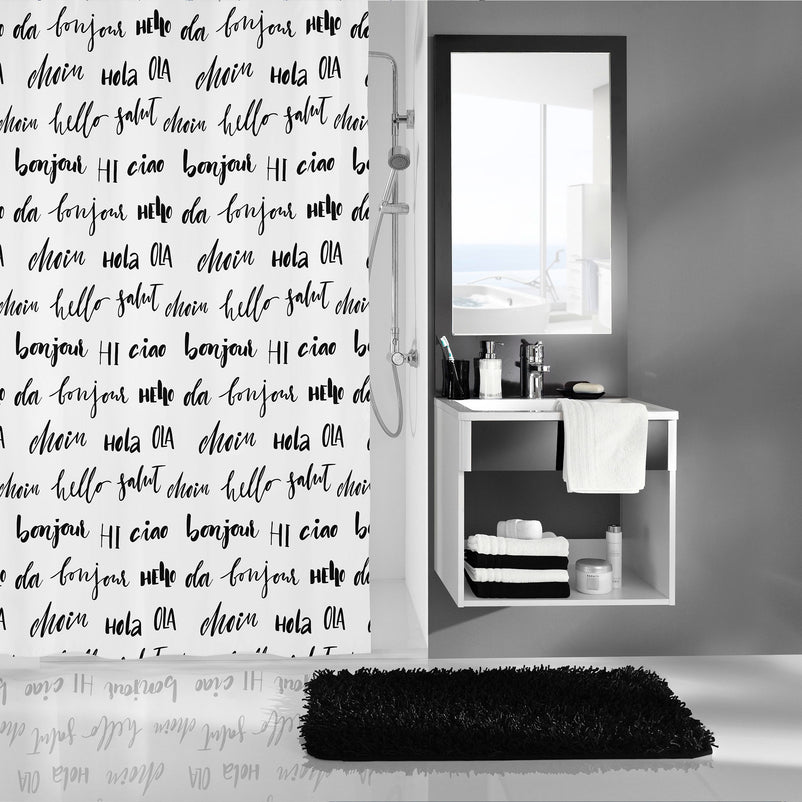 ola bonjour HEllo ola bonjour HEllo
choin Hola OLA choin Hola OLA
choin hello salut choin hello salut choi
bonjour HI ciao bonjour HI ciao
ola bonjour HEllo ola bonjour HEllo
choin Hola OLA choin Hola OLA
choin hello salut choin hello salut choin
bonjour HI ciao bonjour HI ciao
ola bonjour HEllo ola bonjour HEllo
choin Hola OLA choin Hola OLA
choin hello salut choin hello salut choin
bonjour HI ciao bonjour HI ciao
ola bonjour HEllo ola bonjour HEllo
choin Hola OLA choin Hola OLA